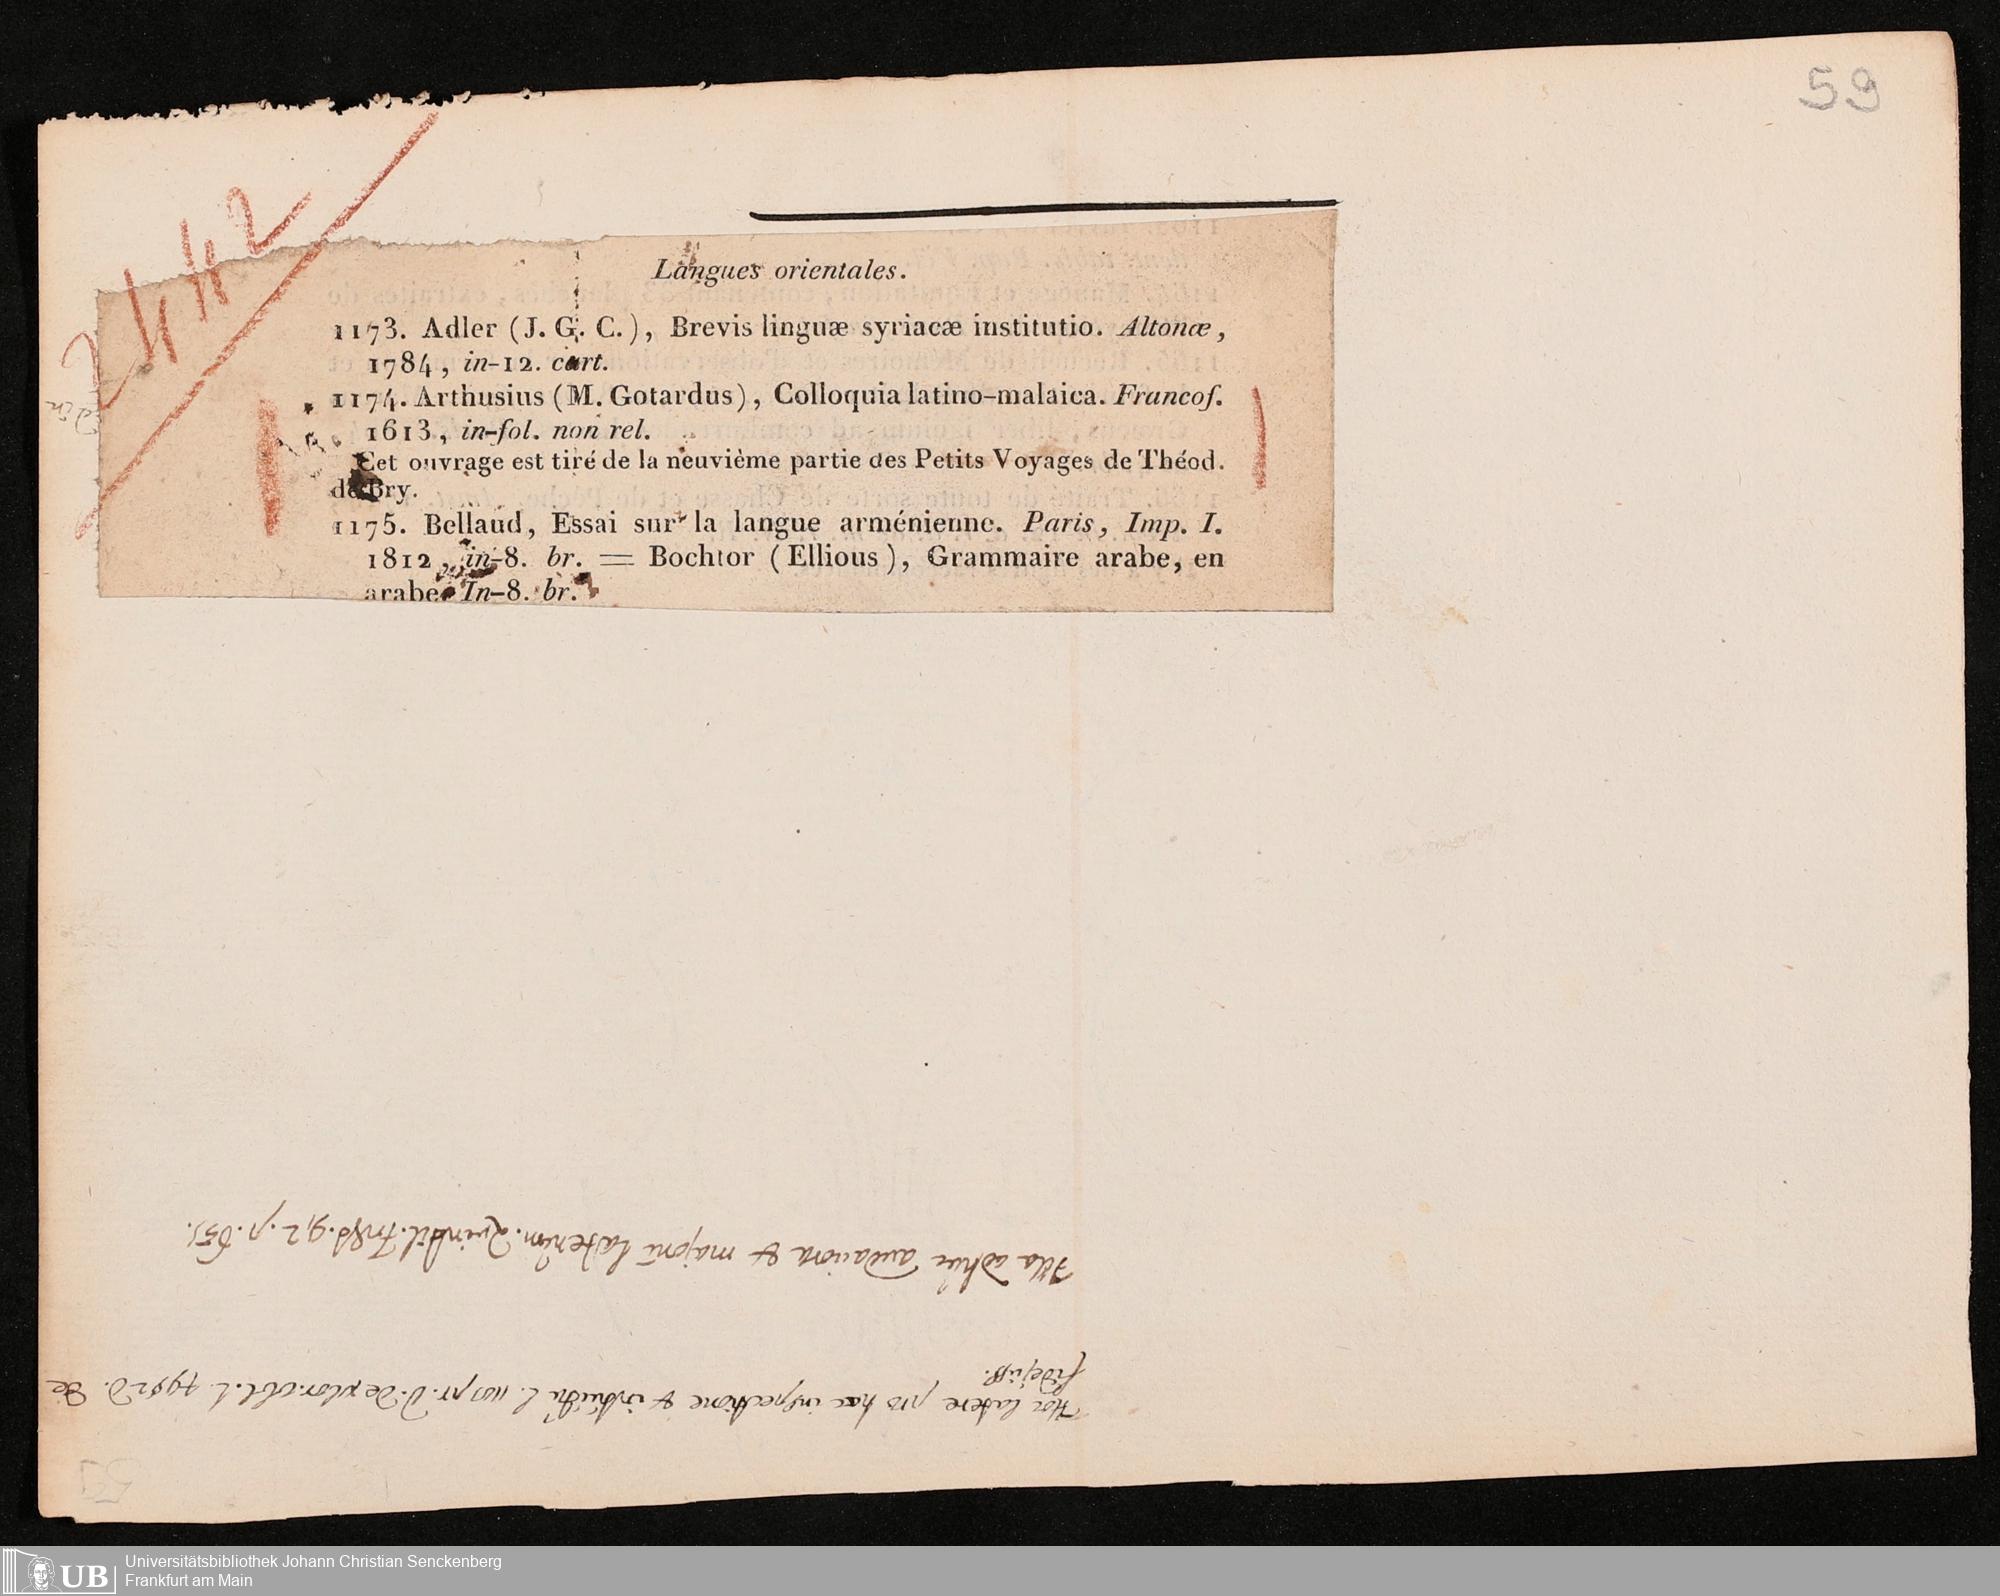 59
2442
Langues orientales.
1173. Adler (J. G. C.), Brevis linguæ syriacæ institutio. Altonæ,
1784, in-12. cart.
1174. Arthusius (M. Gotardus), Colloquia latino-malaica. Francof.
1613, in-fol. non rel.
Cet ouvrage est tiré de la neuvième partie des Petits Voyages de Théod.
de Bry.
1175. Bellaud, Essai sur la langue arménienne. Paris, Imp. I.
1812, in-8. br. = Bochtor (Ellious), Grammaire arabe, en
arabe. In-8. br.
Hoc latere pro hac inspectione &
fidejuss.
Illa adhuc & majori
59
UB
Universitätsbibliothek Johann Christian Senckenberg
Frankfurt am Main